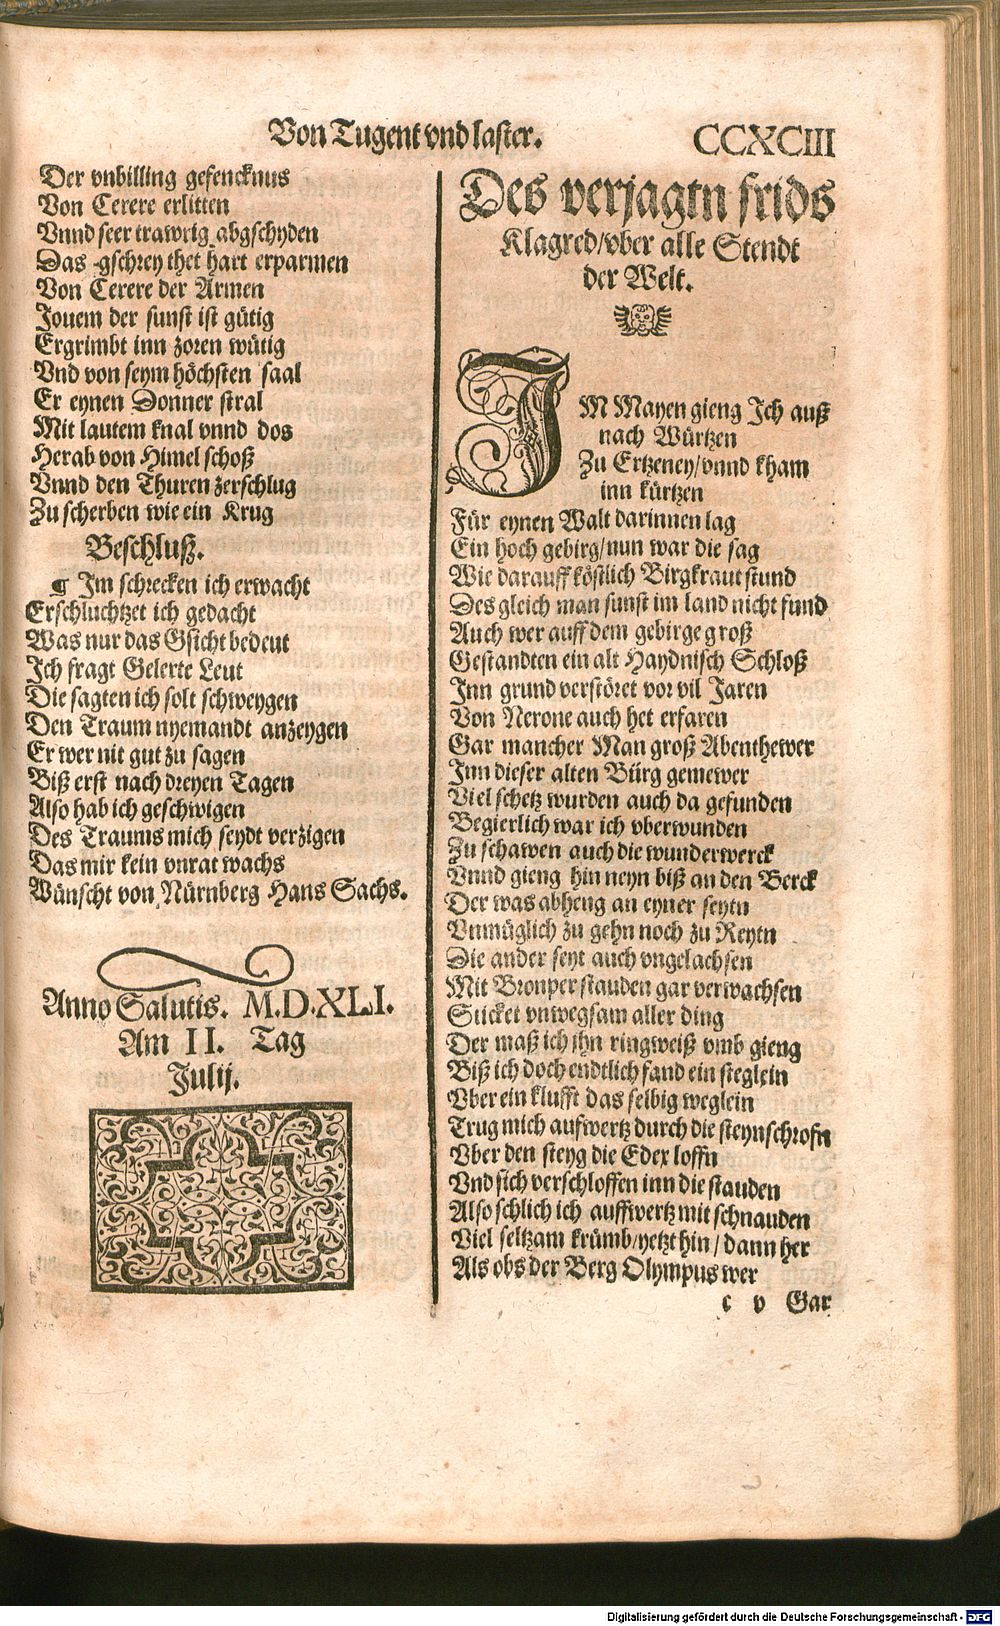 Von Tugent vnd laster.
CCXCIII
Der vnbilling gefencknus
Von Cerere erlitten
Vnnd seer trawrig abgschyden
Das gschrey thet hart erparmen
Von Cerere der Armen
Jouem der sunst ist gütig
Ergrimbt inn zoren wütig
Vnd von seym höchsten saal
Er eynen Donner stral
Mit lautem knal vnnd dos
Herab von Himel schoß
Vnnd den Thuren zerschlug
Zu scherben wie ein Krug
Beschluß.
¶ Im schrecken ich erwacht
Erschluchtzet ich gedacht
Was nur das Gsicht bedeut
Ich fragt Gelerte Leut
Die sagten ich solt schweygen
Den Traum nyemandt anzeygen
Er wer nit gut zu sagen
Biß erst nach dreyen Tagen
Also hab ich geschwigen
Des Traums mich seydt verzigen
Das mir kein vnrat wachs
Wünscht von Nürnberg Hans Sachs.
Anno Salutis. M.D.XLI.
Am II. Tag
Julij.
Des verjagtn frids
Klagred/vber alle Stendt
der Welt.
IM Mayen gieng Ich auß
nach Würtzen
Zu Ertzeney/vnnd kham
inn kürtzen
Für eynen Walt darinnen lag
Ein hoch gebirg/nun war die sag
Wie darauff köstlich Birgkraut stund
Des gleich man sunst im land nicht fund
Auch wer auff dem gebirge groß
Gestandten ein alt Haydnisch Schloß
Inn grund verstöret vor vil Jaren
Von Nerone auch het erfaren
Gar mancher Man groß Abenthewer
Inn dieser alten Bürg gemewer
Viel schetz wurden auch da gefunden
Begierlich war ich vberwunden
Zu schawen auch die wunderwerck
Vnnd gieng hin neyn biß an den Berck
Der was abheng an eyner seytn
Vnmüglich zu gehn noch zu Reytn
Die ander seyt auch vngelachsen
Mit Bronper stauden gar verwachsen
Sticket vnwegsam aller ding
Der maß ich jhn ringweiß vmb gieng
Biß ich doch endtlich fand ein steglein
Vber ein klufft das selbig weglein
Trug mich aufwertz durch die steynschrofn
Vber den steyg die Edex loffn
Vnd sich verschloffen inn die stauden
Also schlich ich auffwertz mit schnauden
Viel seltzam krümb/yetzt hin/dann her
Als obs der Berg Olympus wer
c v Gar
Digitalisierung gefördert durch die Deutsche Forschungsgemeinschaft - DFG